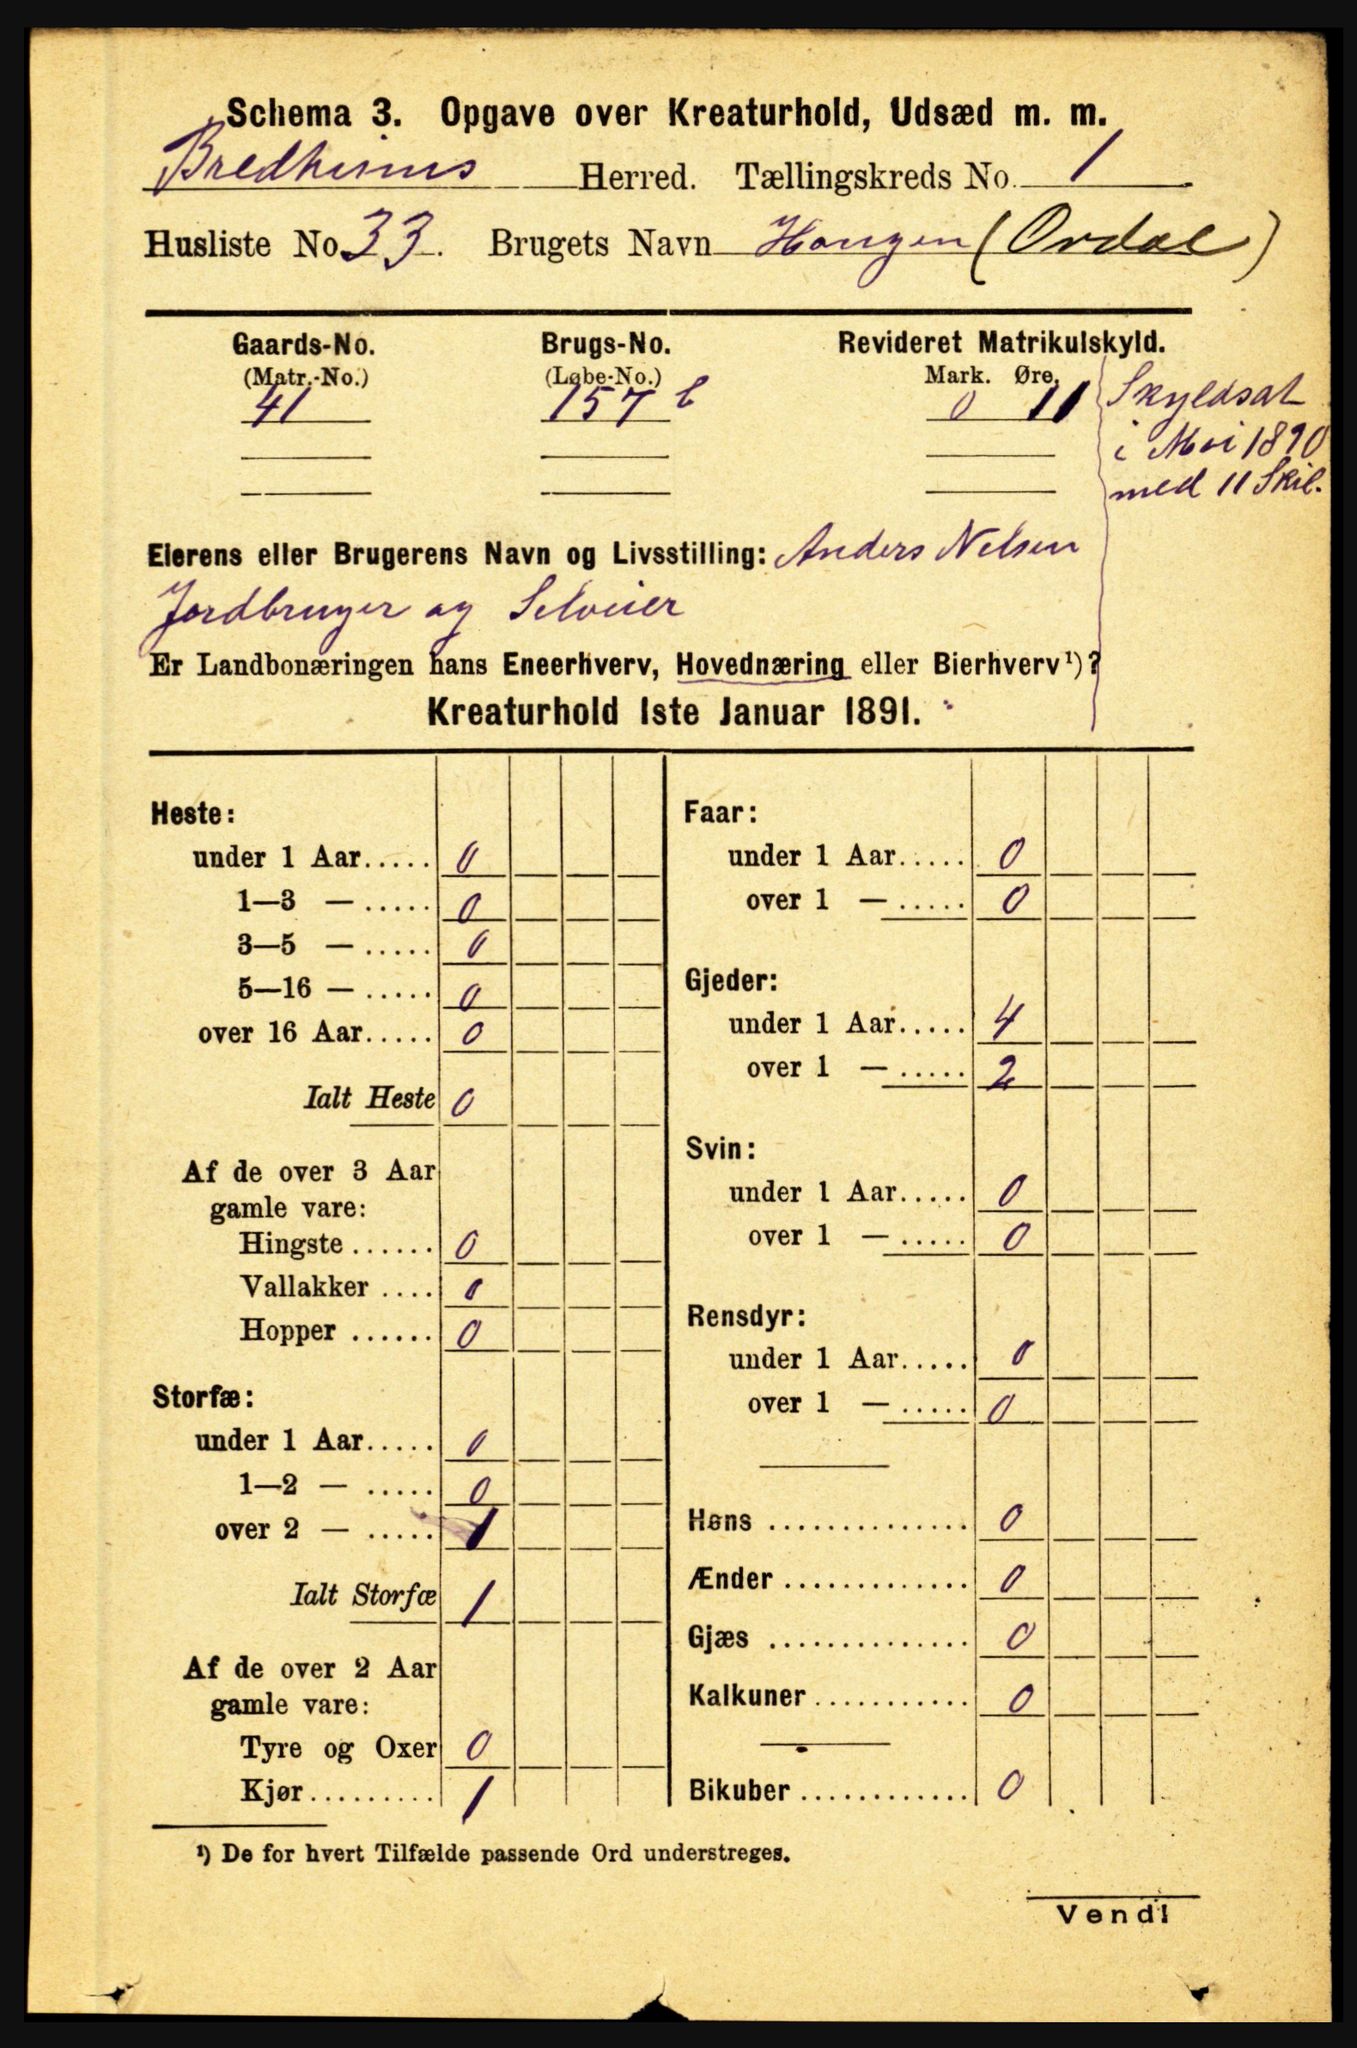 Schema 3. Opgave over Kreaturhold, Udsæd m. m.
Bredheims Herred. Tællingskreds No. 1
Husliste No. 33. Brugets Navn Haugen (Ordal)
Gaards-No. Brugs-No. Revideret Matrikulskyld.
(Matr.-No.) (Løbe-No.) Mark. Øre.
41 157 b 0 11
Skyldsat
i Mai 1890
med 11 Skil.
Eierens eller Brugerens Navn og Livsstilling: Anders Nelsen
Jordbruger og Selveier
Er Landbonæringen hans Eneerhverv, Hovednæring eller Bierhverv¹)?
Kreaturhold 1ste Januar 1891.
Heste:
under 1 Aar..... 0
1—3 — ..... 0
3—5 — ..... 0
5—16 — ..... 0
over 16 Aar..... 0
Ialt Heste 0
Af de over 3 Aar
gamle vare:
Hingste ...... 0
Vallakker .... 0
Hopper ...... 0
Storfæ:
under 1 Aar..... 0
1—2 — ..... 0
over 2 — ..... 1
Ialt Storfæ 1
Af de over 2 Aar
gamle vare:
Tyre og Oxer 0
Kjør......... 1
Faar:
under 1 Aar..... 0
over 1 — ..... 0
Gjeder:
under 1 Aar..... 4
over 1 — ..... 2
Svin:
under 1 Aar..... 0
over 1 — ..... 0
Rensdyr:
under 1 Aar..... 0
over 1 — ..... 0
Høns .............. 0
Ænder ............. 0
Gjæs .............. 0
Kalkuner ........... 0
Bikuber ............ 0
¹) De for hvert Tilfælde passende Ord understreges.
Vend!